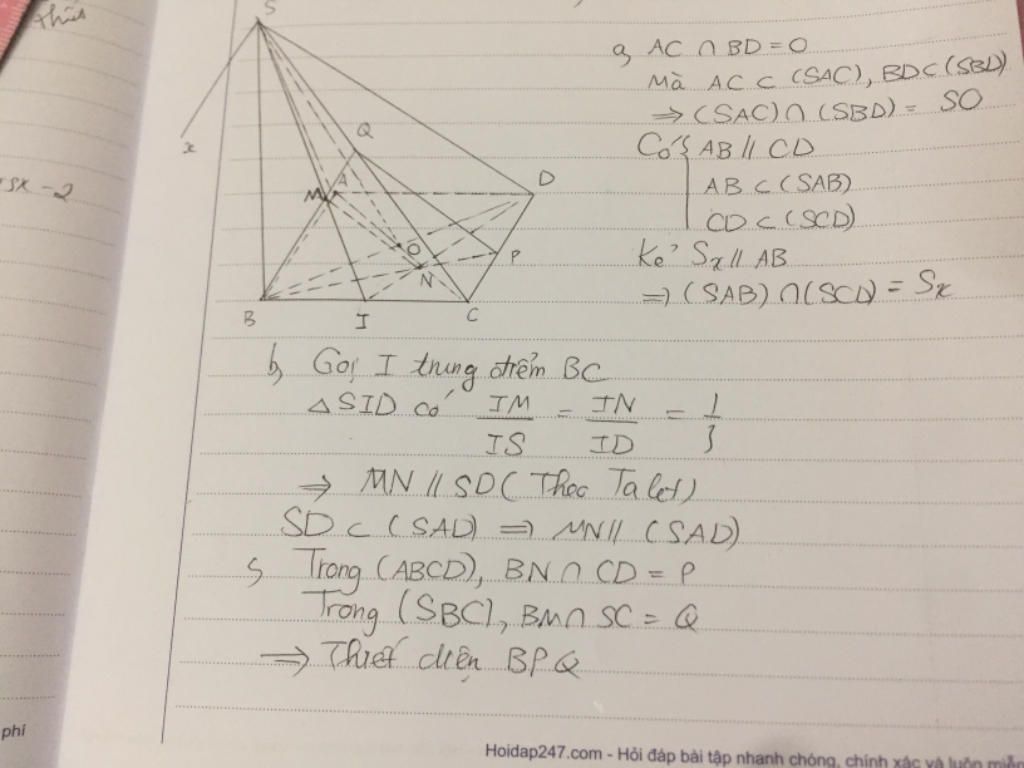 thiết
5x - 2
phí
S
x
Q
M
A
D
O
N
P
B
I
C
a, AC ∩ BD = O
Mà AC ⊂ (SAC), BD ⊂ (SBD)
⇒ (SAC) ∩ (SBD) = SO
Có { AB // CD
AB ⊂ (SAB)
CD ⊂ (SCD)
Kẻ Sx // AB
⇒ (SAB) ∩ (SCD) = Sx
b, Gọi I trung điểm BC
△SID có IM/IS = IN/ID = 1/3
⇒ MN // SD (Theo Talet)
SD ⊂ (SAD) ⇒ MN // (SAD)
c, Trong (ABCD), BN ∩ CD = P
Trong (SBC), BM ∩ SC = Q
⇒ Thiết diện BPQ
Hoidap247.com - Hỏi đáp bài tập nhanh chóng, chính xác và luôn miễn